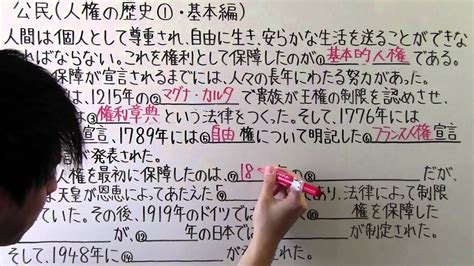 公民(人権の歴史①・基本編)
人間は個人として尊重され、自由に生き、安らかな生活を送ることができな
ればならない。これを権利として保障したのが①基本的人権である。
保障が宣言されるまでには、人々の長年にわたる努力があった。
は、1215年の②マグナ・カルタで貴族が王権の制限を認めさせ、
は③権利章典という法律をつくった。そして1776年には
宣言、1789年には⑤自由権について明記した⑥フランス人権宣言
が発表された。
人権を最初に保障したのは、⑦18 年の⑧ だが、
な天皇が恩恵によってあたえた「⑨ であり、法律によって制限
ていた。その後、1919年のドイツでは 権を保障した
が、⑫ 年の日本では が制定された。
そして、1948年に⑭